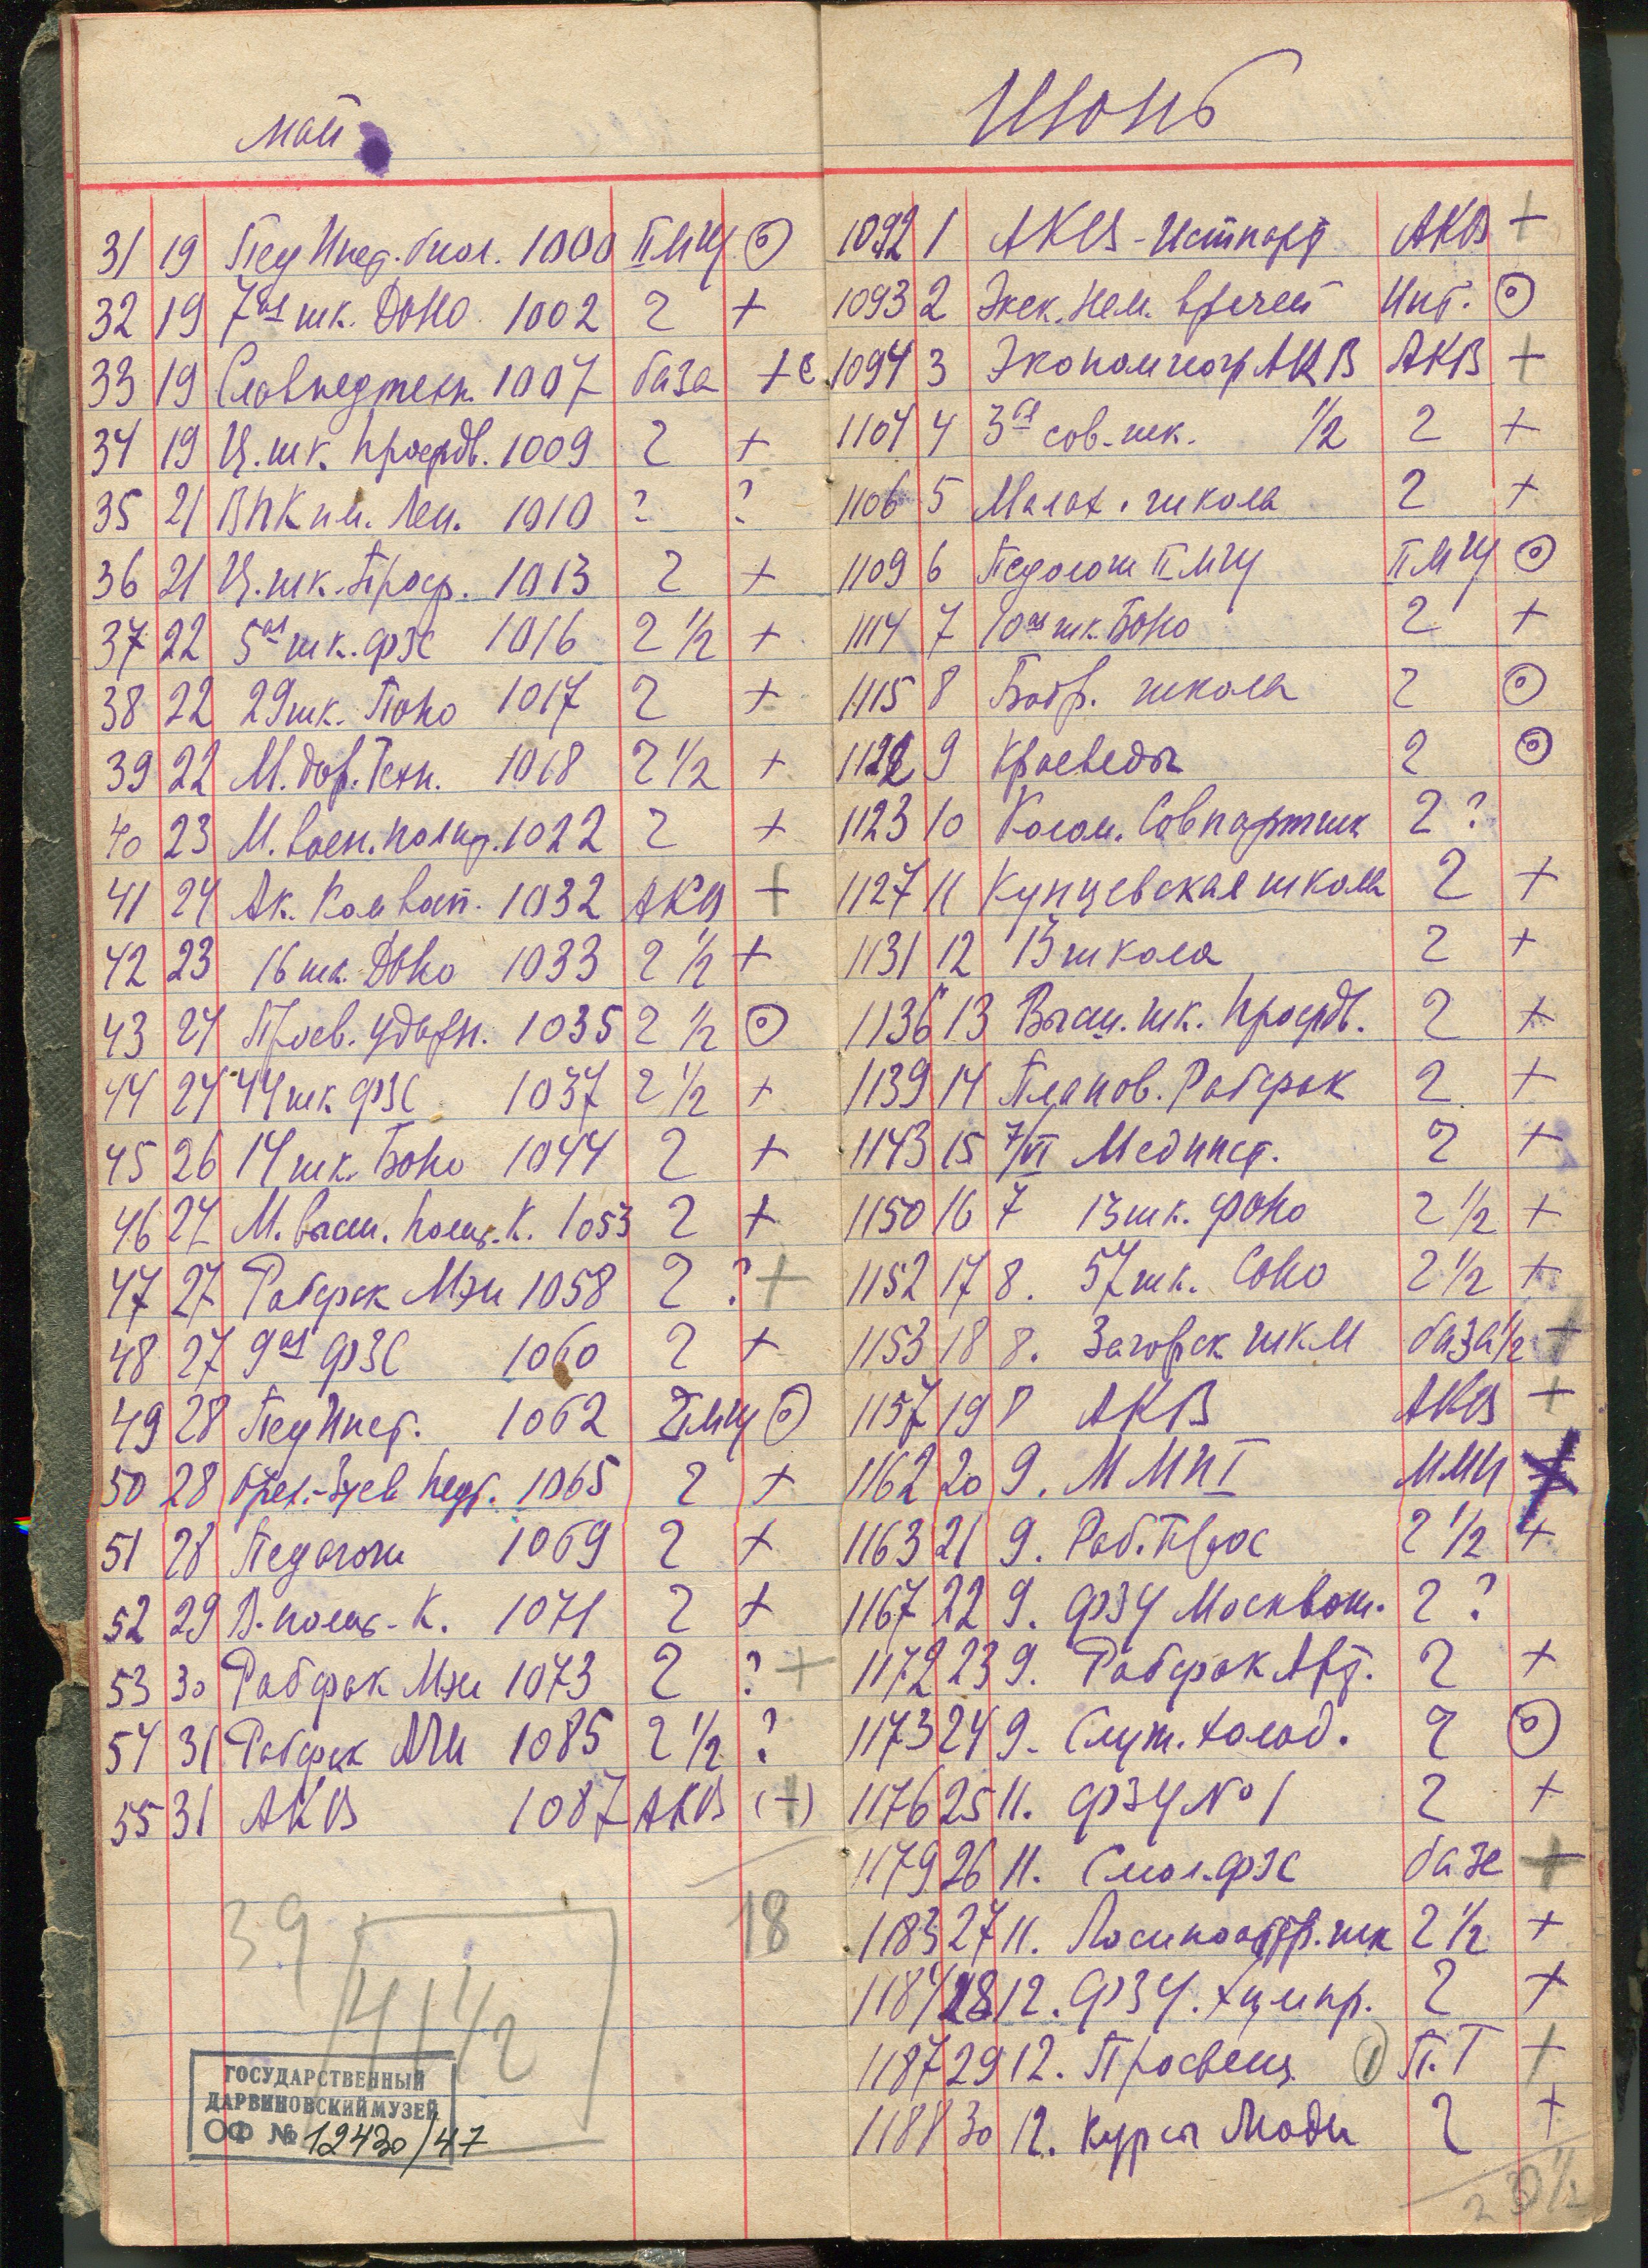 май
31 19 Пед Инст. биол. 1000 II МГУ ⊙
32 19 7ая шк. ДОНО. 1002 2 +
33 19 1007 база + с
34 19 Ц. шк. Профдв. 1009 2 +
35 21 ВПК им. Лен. 1010 ? ?
36 21 Ц. шк. Проф. 1013 2 +
37 22 5ая шк. ФЗС 1016 2 ½ +
38 22 29 шк. Поно 1017 2 +
39 22 М. дор. Техн. 1018 2 ½ +
40 23 М. воен. 1022 2 +
41 24 Ак. Ком восп. 1032 АКВ +
42 23 16 шк. Доно 1033 2 ½ +
43 24 1035 2 ½ ⊙
44 24 44 шк ФЗС 1037 2 ½ +
45 26 14 шк. Боно 1044 2 +
46 27 М. высш. К. 1053 2 +
47 27 Рабфак Мэи 1058 2 ? +
48 27 9ая ФЗС 1060 2 +
49 28 Пед Инст. 1062 МГУ ⊙
50 28 Орех.-Зуев Педт. 1065 2 +
51 28 Педагоги 1069 2 +
52 29 К. 1071 2 +
53 30 Рабфак Мэи 1073 2 ? +
54 31 Рабфак 1085 2 ½ ?
55 31 АКВ 1087 АКВ (+)
39 18
41 ½
ГОСУДАРСТВЕННЫЙ
ДАРВИНОВСКИЙ МУЗЕЙ
ОФ № 12430/47
Июнь
1092 1 АКВ - Истпарт АКВ +
1093 2 Экск. нем. врачей Инт. ⊙
1094 3 АКВ АКВ +
1104 4 3ья сов. шк. ½ 2 +
1106 5 Малах. школа 2 +
1109 6 Педологи II МГУ II МГУ ⊙
1114 7 10ая шк. Боно 2 +
1115 8 Бобр. школа 2 ⊙
1122 9 Краеведы 2 ⊙
1123 10 Колом. Совпартшк 2 ?
1127 11 Кунцевская школа 2 +
1131 12 13 школа 2 +
1136 13 Высш. шк. Профдв. 2 +
1139 14 Планов. Рабфак 2 +
1143 15 7/VI Мединст. 2 +
1150 16 7 13 шк. ФОНО 2 ½ +
1152 17 8. 57 шк. Соно 2 ½ +
1153 18 8. Загорск ШКМ база ½ +
1157 19 8 АКВ АКВ +
1162 20 9. ММИ I ММИ +
1163 21 9. Раб. 2 ½ +
1167 22 9. ФЗУ Москвош. 2 ?
1172 23 9. Рабфак Арт. 2 +
1173 24 9. Слуш. холод. 2 ⊙
1176 25 11. ФЗУ № 1 2 +
1179 26 11. Смол. ФЗС база +
1183 27 11. Лосиноостр. шк 2 ½ +
1184 28 12. ФЗУ. 2 +
1187 29 12. Просвещ. ① П. Т +
1188 30 12. Курсы Моди 2 +